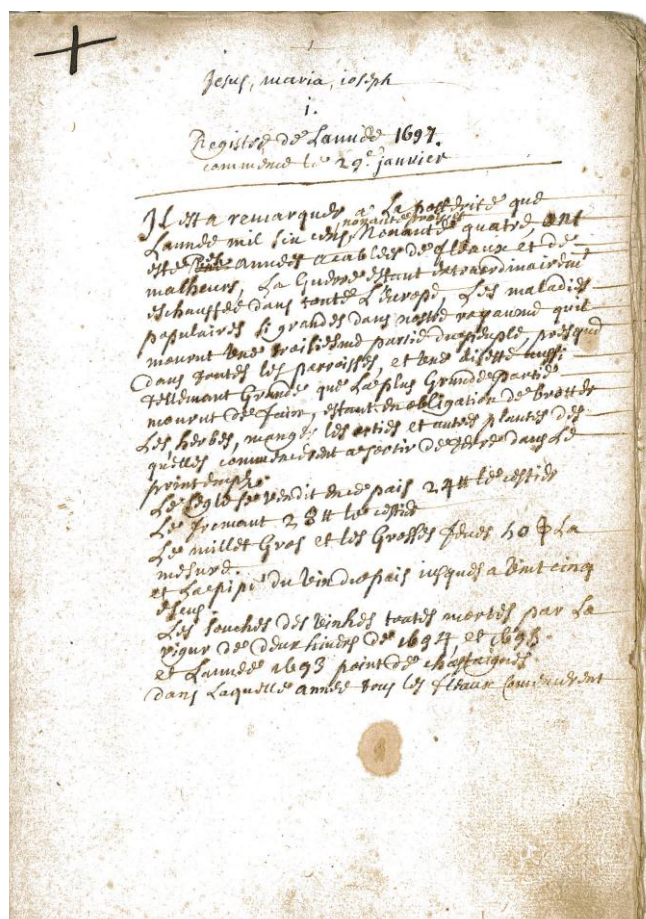 Jesus, maria, ioseph
1.
Registre de Lannée 1697.
commence le 29e janvier
Il est a remarquer a La posterité que
nonante trois et
Lannée mil six cens Nonante quatre, ont
esté années acablées de fleaux et de
malheurs, La Guerre estant extraordinairemt
eschauffée dans toute L'europe, Les maladies
populaires si grandes dans nostre royaume quil
mourut une troisieme partie du peuple, presque
dans toutes les parroisses, et une disette aussi
tellemant Grande que La plus Grande partie
mourut de faim, estant en obligation de brotter
Les herbes, manger les orties et autres plantes des
quelles commencerent a sortir de terre dans Le
printemps.
Le segle se vendit en ce pais 24 ₶ le cestier
Le fromant 28 ₶ le cestier
Le millet Gros et les Grosses feves 40 La
mesure.
et La pipe du vin du pais iusques a vint cinq
escus.
Les souches des vinhes toutes mortes par La
rigur de deux hivers de 1694, et 1695.
et Lannée 1693 point de chastaignes.
dans Laquelle année tous les fleaux commencerent